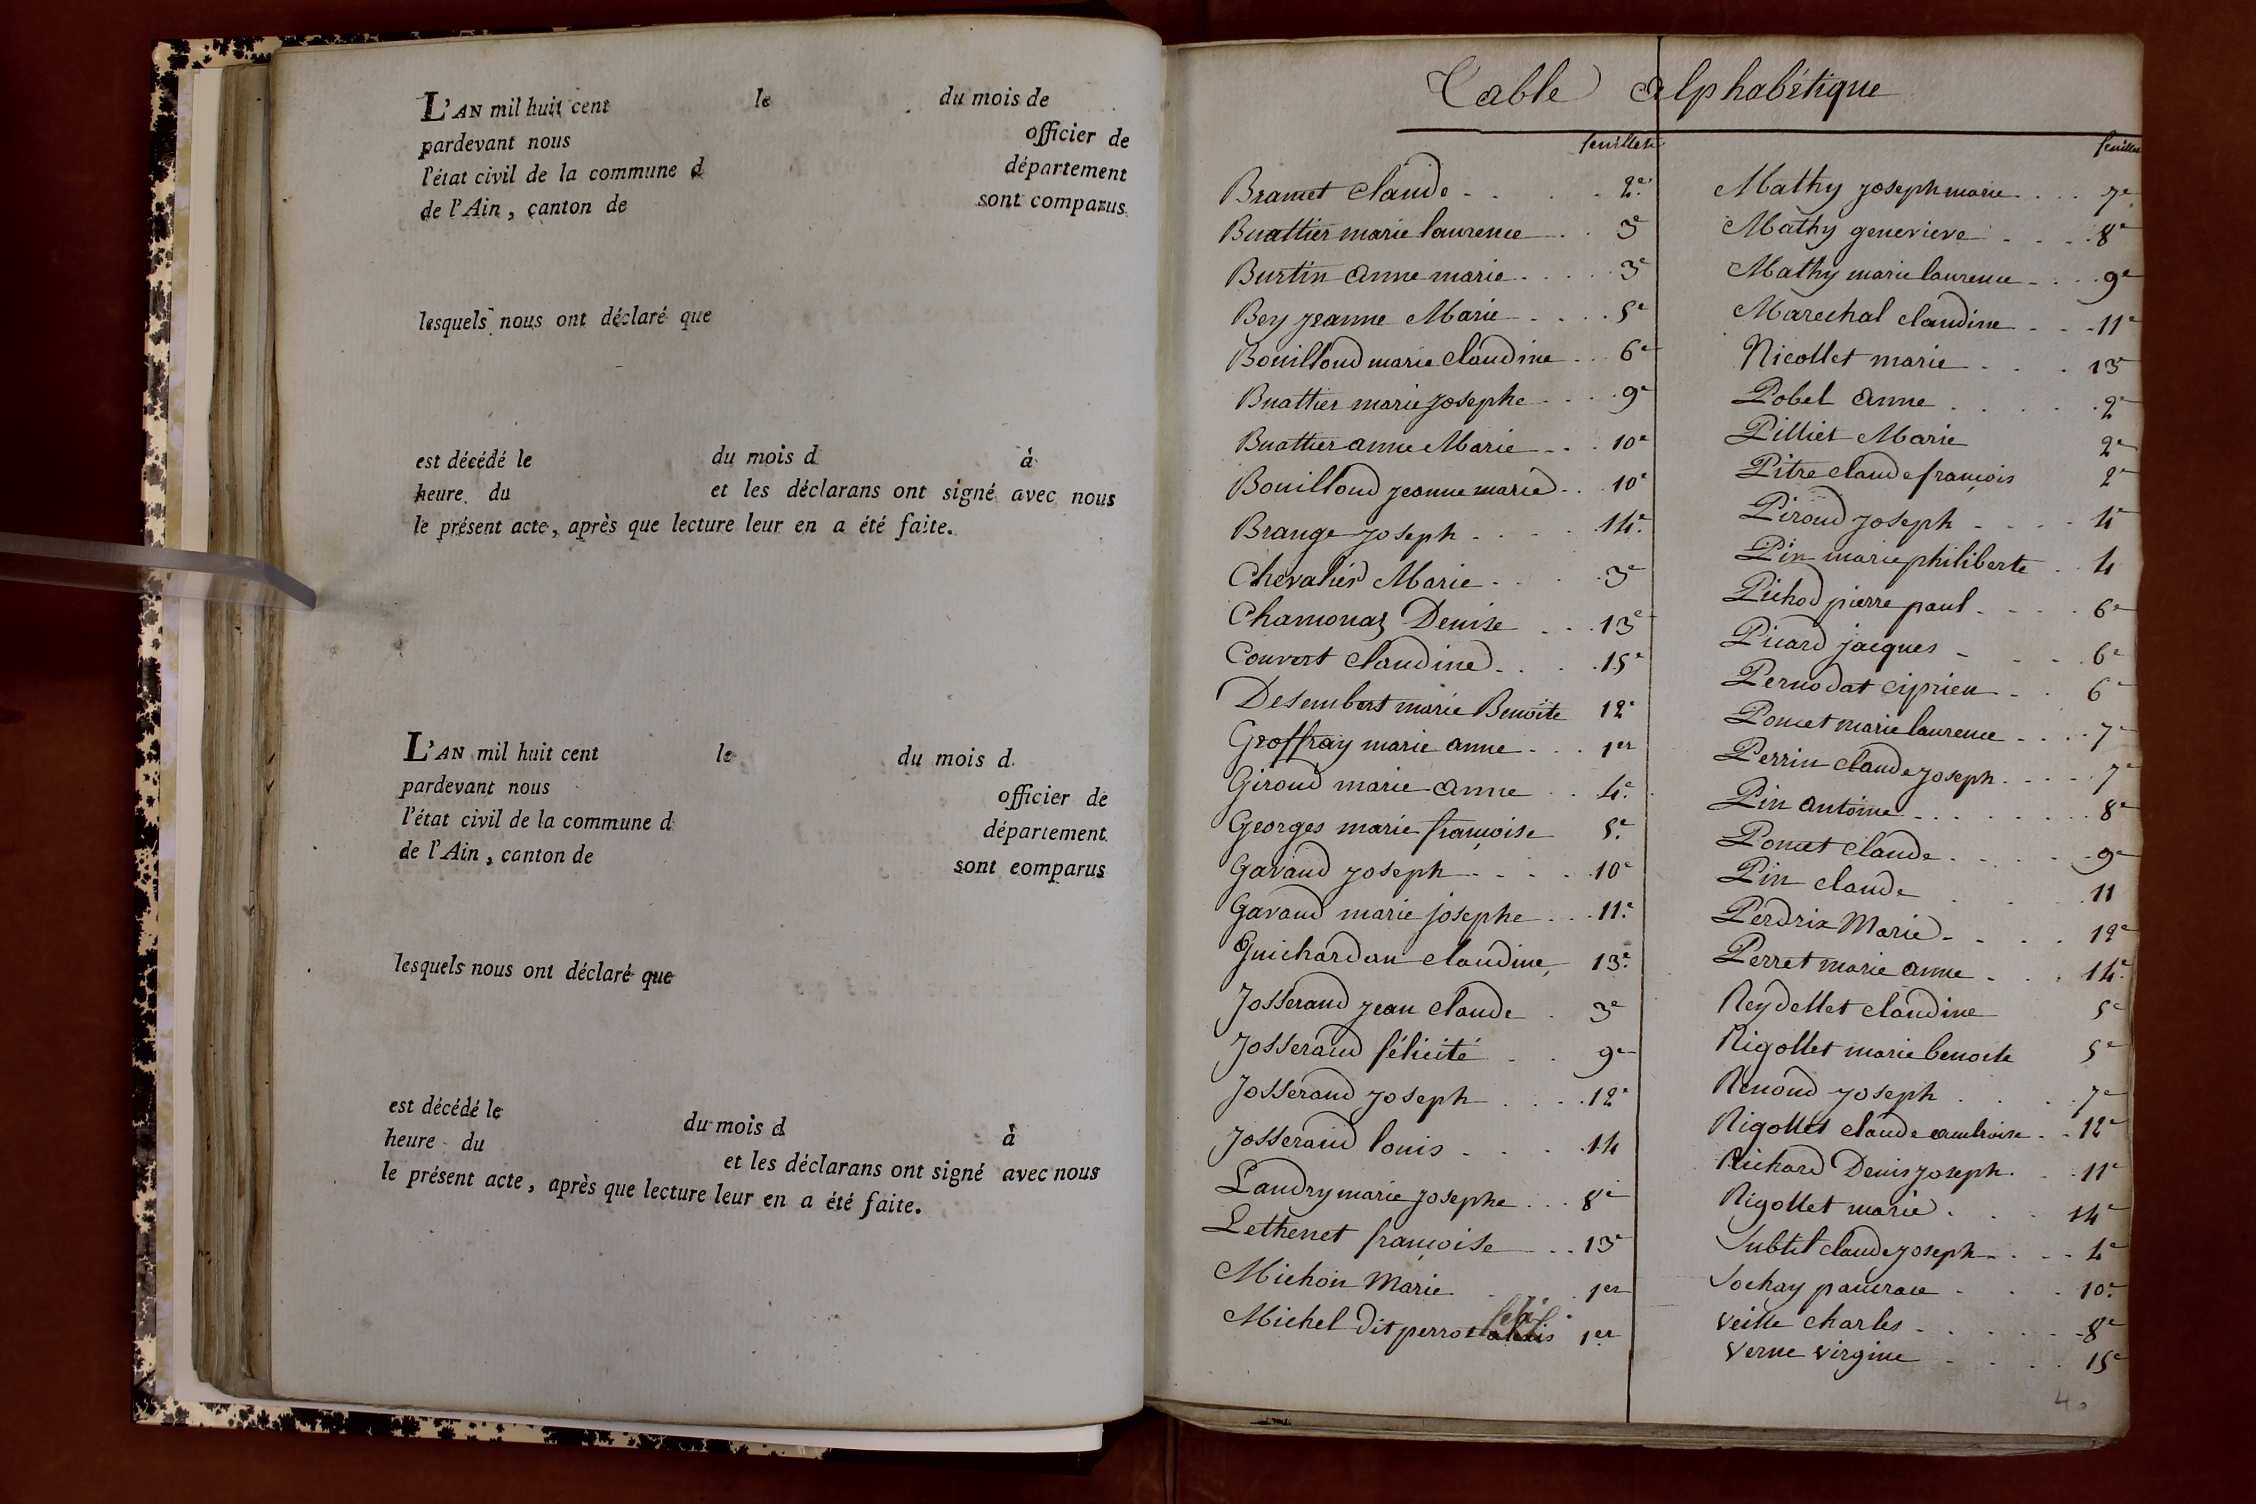 L'AN mil huit cent le du mois de
pardevant nous officier de
l'état civil de la commune d département
de l'Ain, canton de sont comparus
lesquels nous ont déclaré que
est décédé le du mois d à
heure du et les déclarans ont signé avec nous
le présent acte, après que lecture leur en a été faite.
L'AN mil huit cent le du mois d
pardevant nous officier de
l'état civil de la commune d département
de l'Ain, canton de sont comparus
lesquels nous ont déclaré que
est décédé le du mois d à
heure du et les déclarans ont signé avec nous
le présent acte, après que lecture leur en a été faite.
Table alphabétique
feuillets
Bramet claude 2e
Buattier marie laurence 3
Burtin anne marie 3e
Bey jeanne Marie 5e
Bouilloud marie claudine 6e
Buattier marie josephe 9e
Buattier anne Marie 10e
Bouilloud jeanne marie 10e
Brange joseph 14e
Chevalier Marie 3e
Chamonaz Denise 13e
Convert claudine 15e
Desembert marie Benoite 12e
Geoffray marie anne 1er
Giroud marie anne 4e
Georges marie françoise 5e
Gavand joseph 10e
Gavand marie josephe 11e
Guichardan claudine 13e
Josserand jean claude 3e
Josserand félicité 9e
Josserand joseph 12e
Josserand louis 14
Landry marie josephe 8e
Lethenet françoise 13e
Michon Marie 1er
Michel dit perrot 1er
feuillets
Mathy joseph marie 7e
Mathy genevieve 8e
Mathy marie laurence 9e
Marechal claudine 11e
Nicollet marie 13e
Pobel anne 2e
Pilliet Marie 2e
Pitre claude françois 2e
Piroud joseph 4e
Pin marie philiberte 4
Pichod pierre paul 6e
Picard jacques 6e
Pernodat ciprien 6e
Poncet marie laurence 7e
Perrin claude joseph 7e
Pin antoine 8e
Poncet claude 9e
Pin claude 11
Perdrix Marie 12e
Perret marie anne 14e
Reydellet claudine 5e
Rigollet marie benoite 5e
Renoud joseph 7e
Rigollet claude ambroise 12e
Richard Denis joseph 11e
Rigollet marie 14e
Subtil claude joseph 4e
Sochay pancrace 10e
Veille charles 8e
Verne virginie 15e
40